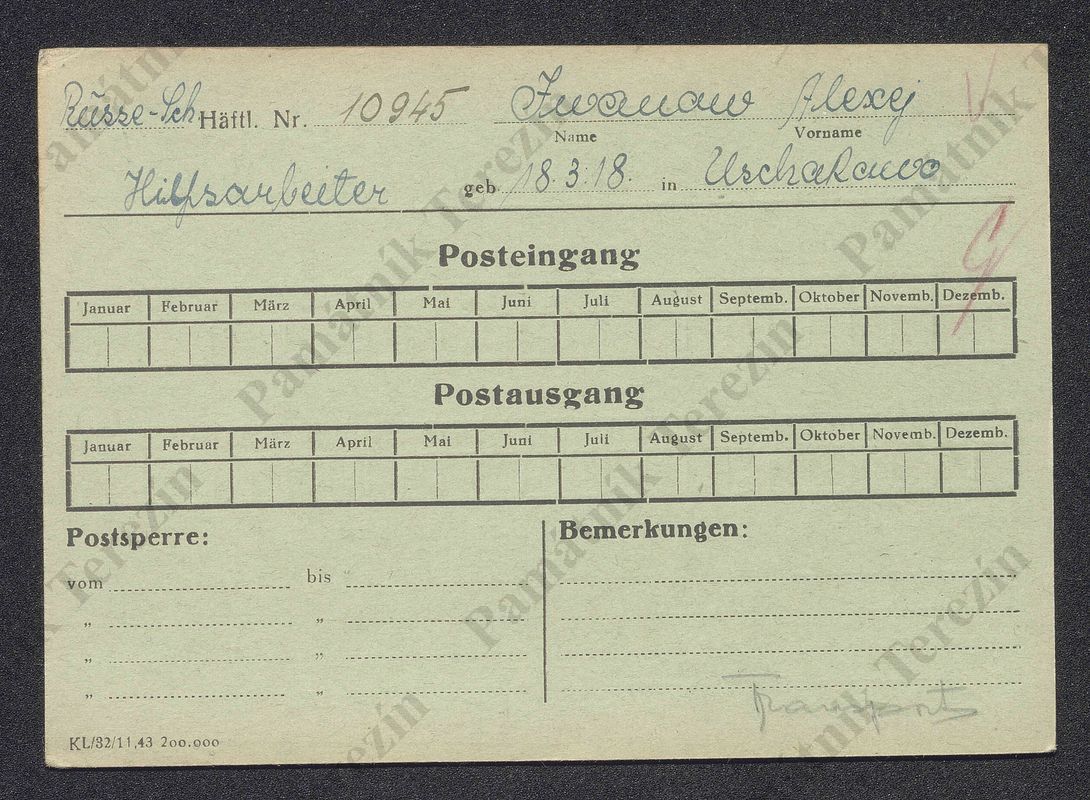 Russe-Sch Häftl. Nr. 10945 Iwanow Alexej
Name Vorname
Hilfsarbeiter geb. 18.3.18. in Uschakowo
Posteingang
Januar Februar März April Mai Juni Juli August Septemb. Oktober Novemb. Dezemb.
Postausgang
Januar Februar März April Mai Juni Juli August Septemb. Oktober Novemb. Dezemb.
Postsperre: Bemerkungen:
vom bis
„ „
„ „
„ „
Transport
KL/32/11.43 200.000
Památník Terezín